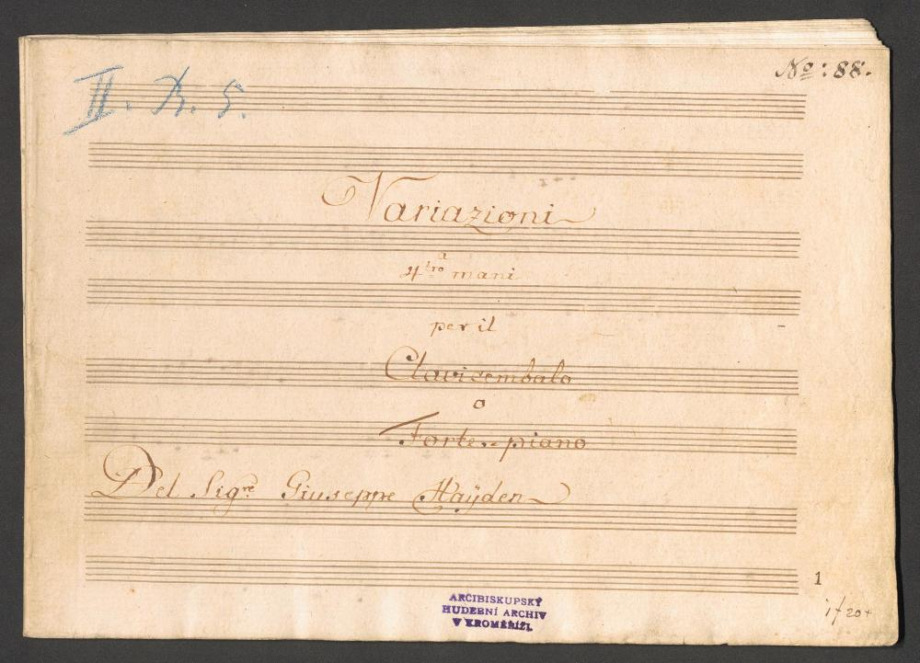 II. Br. 5.
No: 88.
Variazioni
a
4tro mani
per il
Clavicembalo
o
Forte-piano
Del Sigre Giuseppe Haÿden
1
ARCIBISKUPSKÝ
HUDEBNÍ ARCHIV
V KROMĚŘÍŽI.